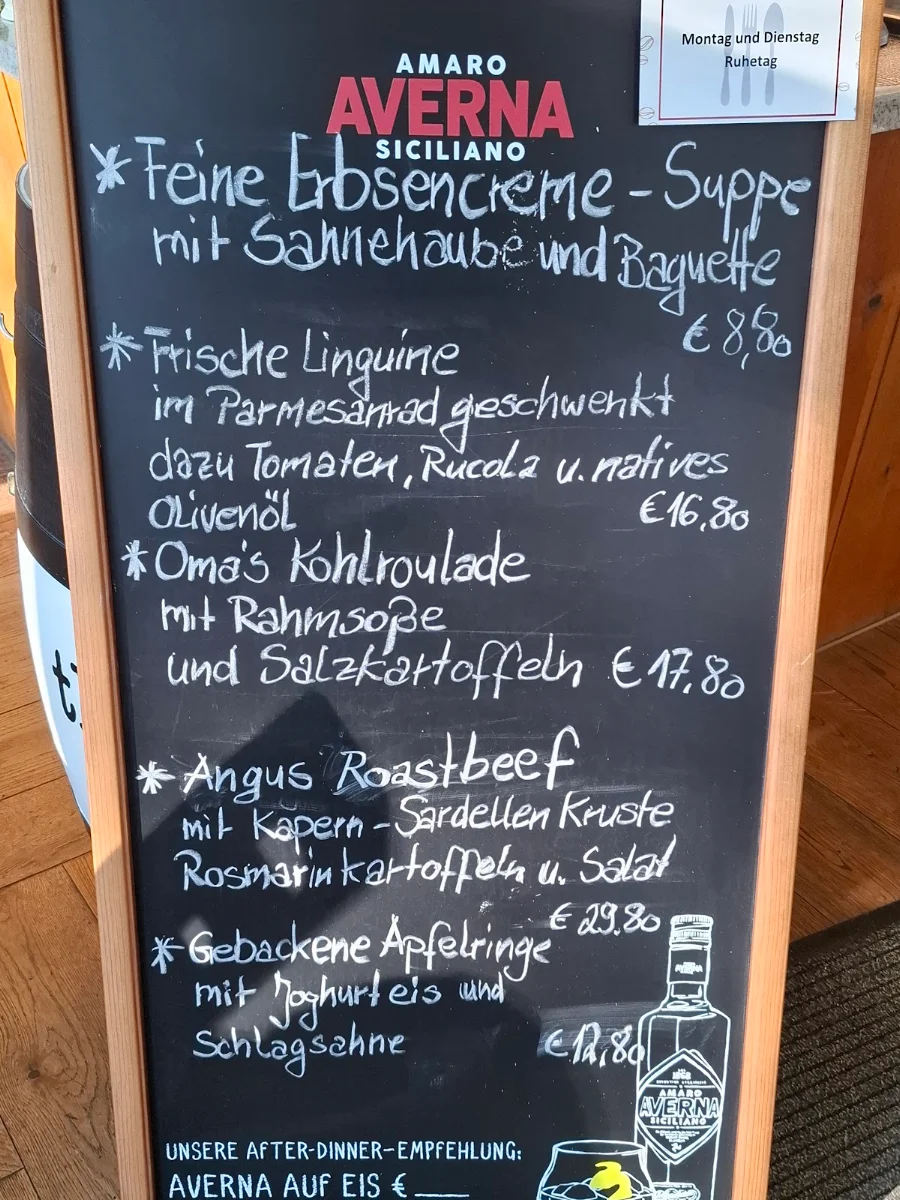 Montag und Dienstag
Ruhetag
AMARO
AVERNA
SICILIANO
* Feine Erbsencreme - Suppe
mit Sahnehaube und Baguette
€ 8,80
* Frische Linguine
im Parmesanrad geschwenkt
dazu Tomaten, Rucola u. natives
Olivenöl €16,80
* Oma's Kohlroulade
mit Rahmsoße
und Salzkartoffeln €17,80
* Angus Roastbeef
mit Kapern - Sardellen Kruste
Rosmarinkartoffeln u. Salat
€ 29.80
* Gebackene Apfelringe
mit Joghurteis und
Schlagsahne €12,80
AVERNA
1868
AMARO
AVERNA
SICILIANO
UNSERE AFTER-DINNER-EMPFEHLUNG:
AVERNA AUF EIS € ____